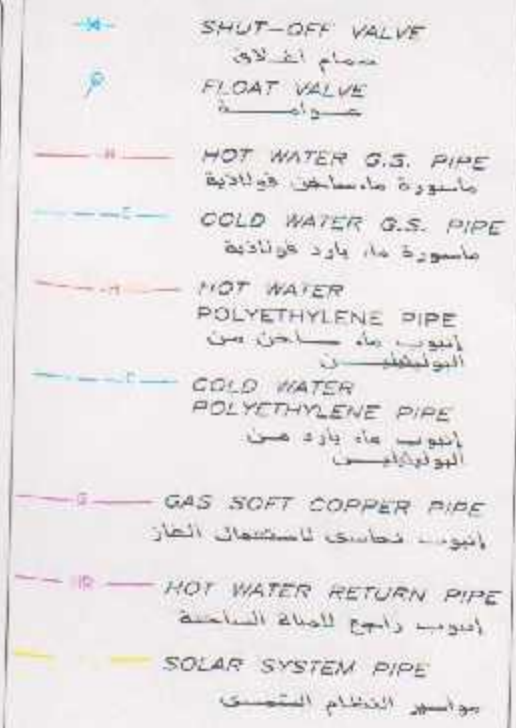 SHUT-OFF VALVE
صمام اغلاق
FLOAT VALVE
عوامة
H HOT WATER G.S. PIPE
ماسورة ماء ساخن فولاذية
C COLD WATER G.S. PIPE
ماسورة ماء بارد فولاذية
H HOT WATER
POLYETHYLENE PIPE
إنبوب ماء ساخن من
البوليثيلين
C COLD WATER
POLYETHYLENE PIPE
إنبوب ماء بارد من
البوليثيلين
G GAS SOFT COPPER PIPE
إنبوب نحاسى لاستعمال الغاز
HR HOT WATER RETURN PIPE
إنبوب راجع للمياة الساخنة
SOLAR SYSTEM PIPE
مواسير النظام الشمسى